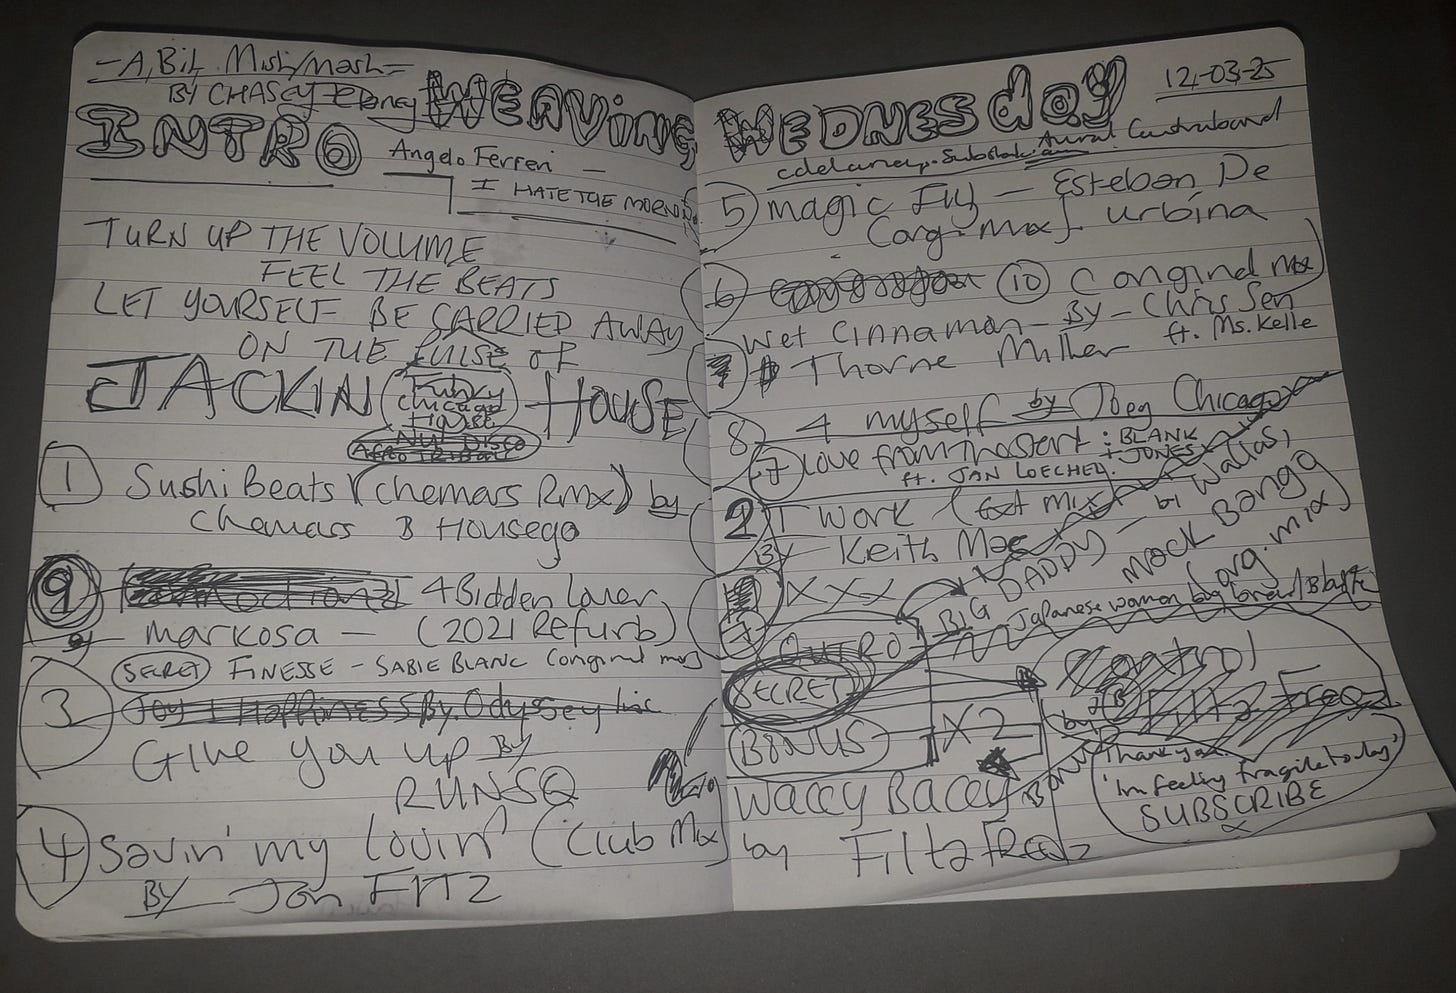 - A, Bit Mish/mash -
BY CHASEY
WEAVING
INTRO
Angelo Ferreri -
I HATE THE
TURN UP THE VOLUME
FEEL THE BEATS
LET YOURSELF BE CARRIED AWAY
ON THE PULSE OF
JACKIN
Funky
Chicago
HOUSE
NUE DISCO
1 Sushi Beats (Chemars Rmx) by
Chemars & Housego
9
4 Bidden Lover
By markosa - (2021 Refurb)
SECRET FINESSE - SABIE BLANC (original mix)
3 Joy + Happiness By. Odyssey Inc
Give you up By
RUNSQ
4 Savin' my lovin' (Club Mix)
BY Jon FITZ
WEDNESday
12,-03-25
Aural Contraband
5 magic Fly - Esteban De
(org. mix) urbina
6
10 (original mix)
Wet Cinnamon - By - Chris Sen
ft. Ms. Kelle
Thorne Miller
8 4 myself by Joey Chicago
7 Love from the start : BLANK
+ JONES
ft. JAN LOECHEL
2 I WORK (Ext Mix)
By - Keith Mac
XXX
BIG DADDY - by Wallas,
Mock Bangg
(org. mix)
Japanese woman by
OUTRO
SECRET
BONUS
X2
Control
by Filta Freqz
BONUS
Waccy Baccy
by Filta Freqz
Thank you
'Im feeling fragile today'
SUBSCRIBE
x